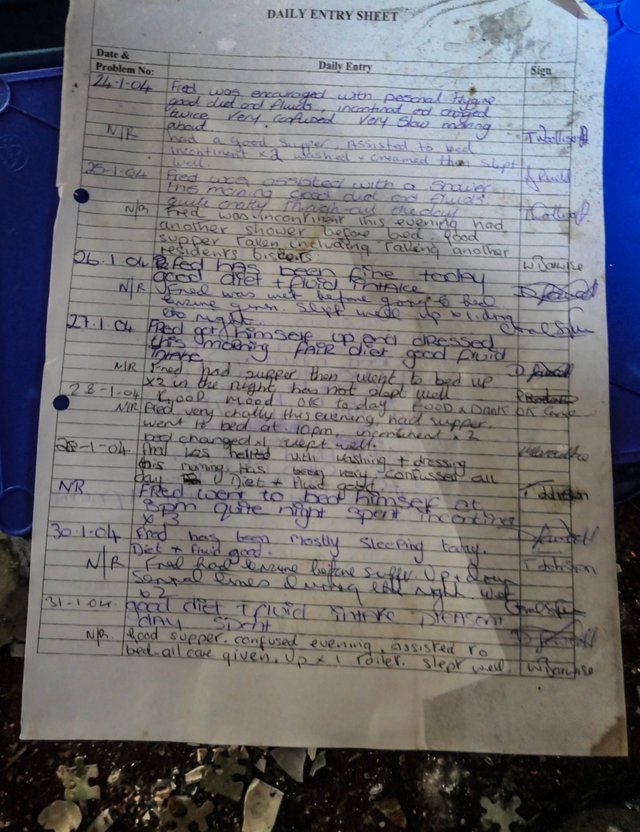 DAILY ENTRY SHEET
Date &
Problem No:
Daily Entry
Sign
24.1.04 Fred was encouraged with personal hygine
good diet and fluids, incontinent and changed
twice very confused very slow moving
about.
N/R had a good supper. Assisted to bed
incontinent x2 washed + creamed then slept
well
25.1.04 Fred was assisted with a shower
this morning good diet and fluids
quite chatty through out the day
N/R Fred was incontinent this evening had
another shower before bed good
supper taken including taking another
residents biscuits W Barwise
26.1.04 Fred has been fine today
good diet + fluid intake
N/R Fred was wet before going to bed
slept well up
to night.
27.1.04 Fred got himself up and dressed
this morning FAIR diet good fluid
intake
N/R Fred had supper then went to bed up
x2 in the night has not slept well
28-1-04 Good mood OK today FOOD & Drink OK
N/R Fred very chatty this evening, had supper
went to bed at 10pm, incontinent x 2
bed changed x1 slept well.
-1-04 Fred was helped with washing + dressing
this morning. Has been very confussed all
day Diet + fluid good.
NR FRED went to bed himself at
8pm quite night spent incontinent
x 3
30.1.04 Fred has been mostly sleeping today.
Diet + fluid good. T Johnson
N/R Fred had before supper up + down
several times during the night. wet
x2
31-1-04. good diet + fluid intake pleasant
day spent
N/R. Good supper. confused evening, assisted to
bed-all care given. Up x 1 toilet. slept well. W Barwise